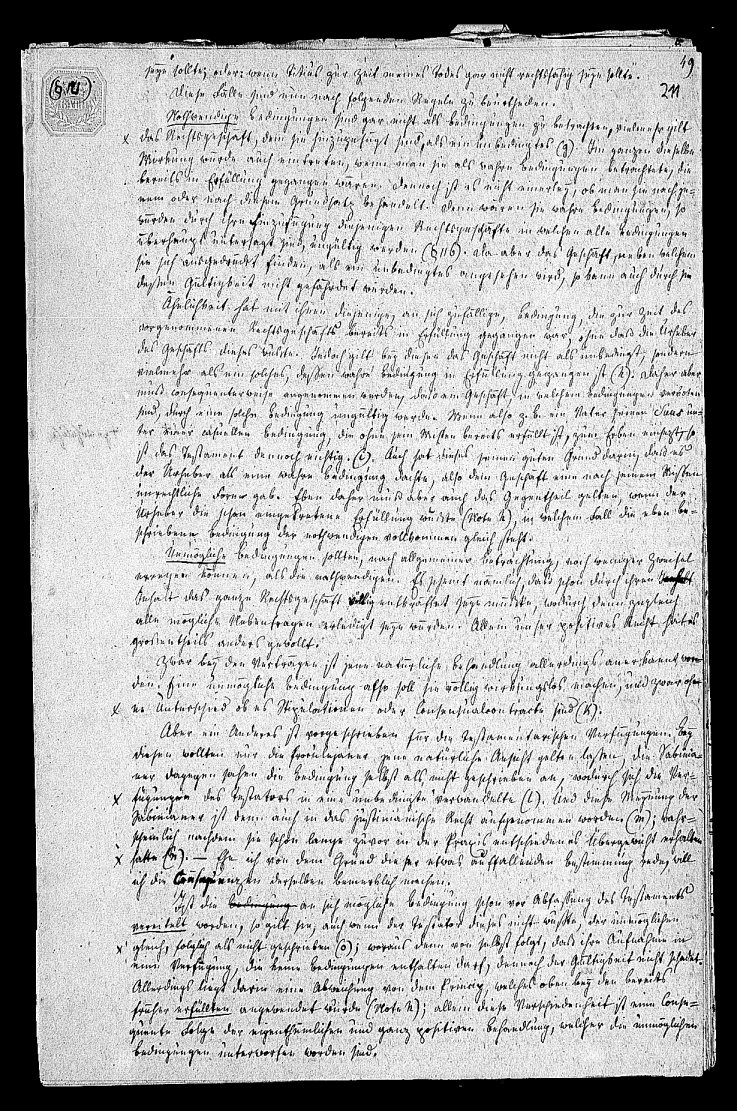 49
211
seyn sollte; oder: wenn Titius zur Zeit meines Todes gar nicht rechtsfähig seyn sollte.
Diese Fälle sind nun nach folgenden Regeln zu beurtheilen.
Nothwendige Bedingungen sind gar nicht als Bedingungen zu betrachten, vielmehr gilt
das Rechtsgeschäft, dem sie hinzugefügt sind, als ein unbedingtes (g). Im ganzen dieselbe
Wirkung würde auch eintreten, wenn man sie als wahre Bedingungen betrachtete, die
bereits in Erfüllung gegangen wären. Dennoch ist es nicht einerley, ob man sie nach je-
nem oder nach diesem Grundsatz behandelt. Denn wären sie wahre Bedingungen, so
würden durch ihre Hinzufügung diejenigen Rechtsgeschäfte in welchen alle Bedingungen
überhaupt untersagt sind, ungültig werden (§ 116). Da aber das Geschäft, neben welchem
sie sich ausgedrückt finden, als ein unbedingtes angesehen wird, so kann auch durch sie
dessen Gültigkeit nicht gefährdet werden.
Ähnlichkeit hat mit ihnen diejenige, an sich zufällige, Bedingung, die zur Zeit des
vorgenommenen Rechtsgeschäfts bereits in Erfüllung gegangen war, ohne daß die Urheber
des Geschäfts dieses wußte. Jedoch gilt bey diesen das Geschäft nicht als unbedingt, sondern
vielmehr als ein solches, dessen wahre Bedingung in Erfüllung gegangen ist (h). Daher aber
muß consequenterweise angenommen werden, daß ein Geschäft in welchem Bedingungen verboten
sind, durch eine solche Bedingung ungültig werde. Wenn also z. B. ein Vater seinen Suus un-
ter einer casuellen Bedingung, die ohne sein Wissen bereits erfüllt ist, zum Erben einsetzt, so
ist das Testament dennoch nichtig (i). Auch hat dieses seinen guten Grund darin, daß es
der Urheber als eine wahre Bedingung dachte, also dem Geschäft eine nach seinem Wissen
unrechtliche Form gab. Eben daher muß aber auch das Gegentheil gelten, wenn der
Urheber die schon eingetretene Erfüllung wußte (Note h), in welchem Fall die eben be-
schriebene Bedingung der nothwendigen vollkommen gleich steht.
Unmögliche Bedingungen sollten, nach allgemeiner Betrachtung, noch weniger Zweifel
erregen können, als die nothwendigen. Es scheint nämlich, daß schon durch ihren
Inhalt das ganze Rechtsgeschäft völlig entkräftet seyn müßte, wodurch denn zugleich
alle mögliche Nebenfragen erledigt seyn würden. Allein unser positives Recht hat es
großentheils anders gewollt.
Zwar bey den Verträgen ist jene natürliche Behandlung allerdings anerkannt wor-
den. Eine unmögliche Bedingung also soll sie völlig wirkungslos machen, und zwar oh-
ne Unterschied ob es Stipulationen oder Consensualcontracte sind (k).
Aber ein Anderes ist vorgeschrieben für die testamentarischen Verfügungen. Bey
diesen wollten nur die Proculejaner jene natürliche Ansicht gelten lassen; die Sabinia-
ner dagegen sahen die Bedingung selbst als nicht geschrieben an, wodurch sich die Ver-
fügungen des Testators in eine unbedingte verwandelte (l). Und diese Meynung der
Sabinianer ist denn auch in das Justinianische Recht aufgenommen worden (m); wahr-
scheinlich nachdem sie schon lange zuvor in der Praxis entschiedenes Übergewicht erhalten
hatte (n). — Ehe ich von dem Grund dieser etwas auffallenden Bestimmung rede, will
ich die Consequenzen derselben bemerklich machen.
Ist die an sich mögliche Bedingung schon vor Abfassung des Testaments
vereitelt worden, so gilt sie, auch wenn der Testator dieses nicht wußte, der unmöglichen
gleich, folglich als nicht geschrieben (o); woraus denn von selbst folgt, daß ihre Aufnahme in
eine Verfügung, die keine Bedingungen enthalten darf, dennoch der Gültigkeit nicht schadet.
Allerdings liegt darin eine Abweichung von dem Princip, welches oben bey den bereits
früher erfüllten angewendet wurde (Note h); allein diese Verschiedenheit ist eine conse-
quente Folge der eigenthümlichen und ganz positiven Behandlung, welcher die unmöglichen
Bedingungen unterworfen worden sind.